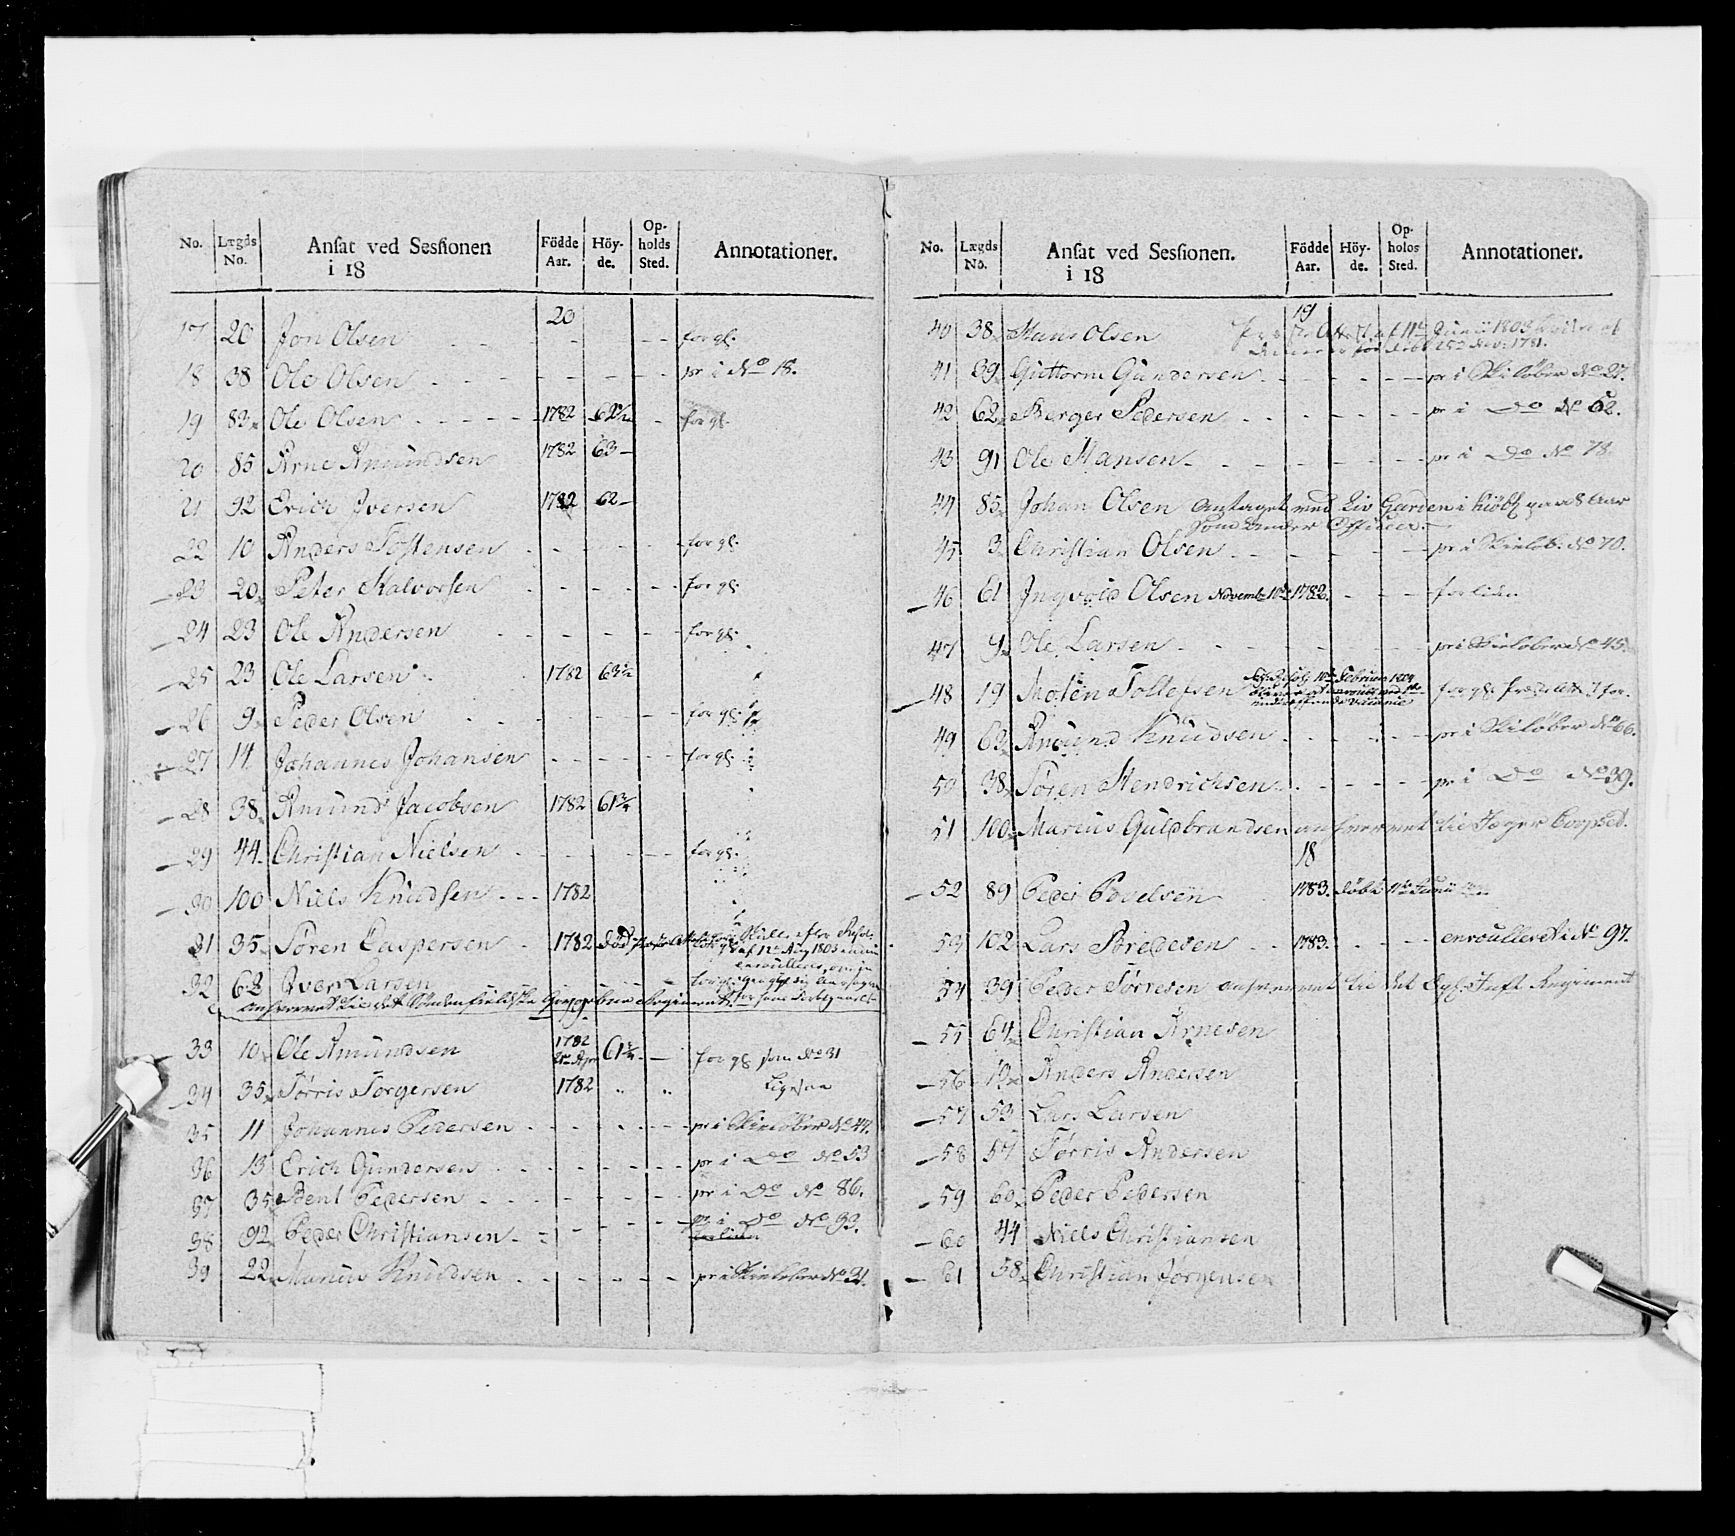 No. Lægds No. Ansat ved Sessionen i 18 Födde Aar. Höy- de. Op- holds Sted. Annotationer.
20
17 20 Jon Olsen - - - - forgl.
18 38 Ole Olsen - - - - pr i No 18.
19 83 Ole Olsen - - - - 1782 62½ - forgl.
20 85 Arne Amundsen 1782 63 -
21 92 Erich Iversen 1782 62 -
22 10 Anders Tostensen - - - - forgl.
23 20 Peter Halvorsen - - - - forgl.
24 23 Ole Andersen - - - - forgl.
25 23 Ole Larsen 1782 63½
26 9 Peder Olsen - - - - forgl.
27 14 Johannes Johansen - - - - forgl.
28 38 Amund Jacobsen 1782 61¾
29 44 Christian Nielsen - - - - forgl.
30 100 Niels Knudsen - - - 1782
31 35 Søren Caspersen - 1782 død
32 62 Iver Larsen
Regiment
19
33 10 Ole Amundsen 1782 61¾ - forgl som No 31
34 35 Tørris Torgersen 1782 " " Ligesaa
35 11 Johannes Pedersen - - - - pr i Skieløber No 44.
36 13 Erich Gundersen - - - - pr i Do No 53
37 35 Bent Pedersen - - - - pr i Do No 86.
38 92 Peder Christiansen - - - - pr i Do No 93.
39 22 Marius Knudsen - - - - pr i Skieløber No 31.
No. Lægds No. Ansat ved Sessionen. i 18 Födde Aar. Höy- de. Op- holds Sted. Annotationer.
19
40 38 Hans Olsen
1781.
41 39 Guttorm Gundersen - - - - pr i Skiløber No 27.
42 62 Berger Pedersen - - - - pr i Do No 62.
43 91 Ole Hansen - - - - pr i Do No 78.
44 85 Johan Olsen Antaget ved Liv Garden i Kiøbh paa 8 Aar
som Under Officeer.
45 3 Christian Olsen - - - - pr i Skieløb: No 70.
46 61 Ingvold Olsen Novemb 10de 1782. - - -
47 9 Ole Larsen - - - - pr i Skieløber No 45.
48 19 Molen Tollefsen forgl.
49 62 Amund Knudsen - - - - pr i Skiløber No 66.
50 38 Søren Hendrichsen - - - - pr i Do No 39.
51 100 Marcus Guldbrandsen anhvervet til Jæger Corpset.
18
52 89 Peder Povelsen 1783. døbt
53 102 Lars Bredesen - - 1783. - - - enroulleret i No 97.
54 39 Peder Tørresen anhvervet til det Inft Regiment
55 64 Christian Arnesen
56 12 Anders Andersen
57 53 Lars Larsen
58 57 Tørris Andersen
59 60 Peder Pedersen
60 44 Niels Christiansen
61 58 Christian Jørgensen